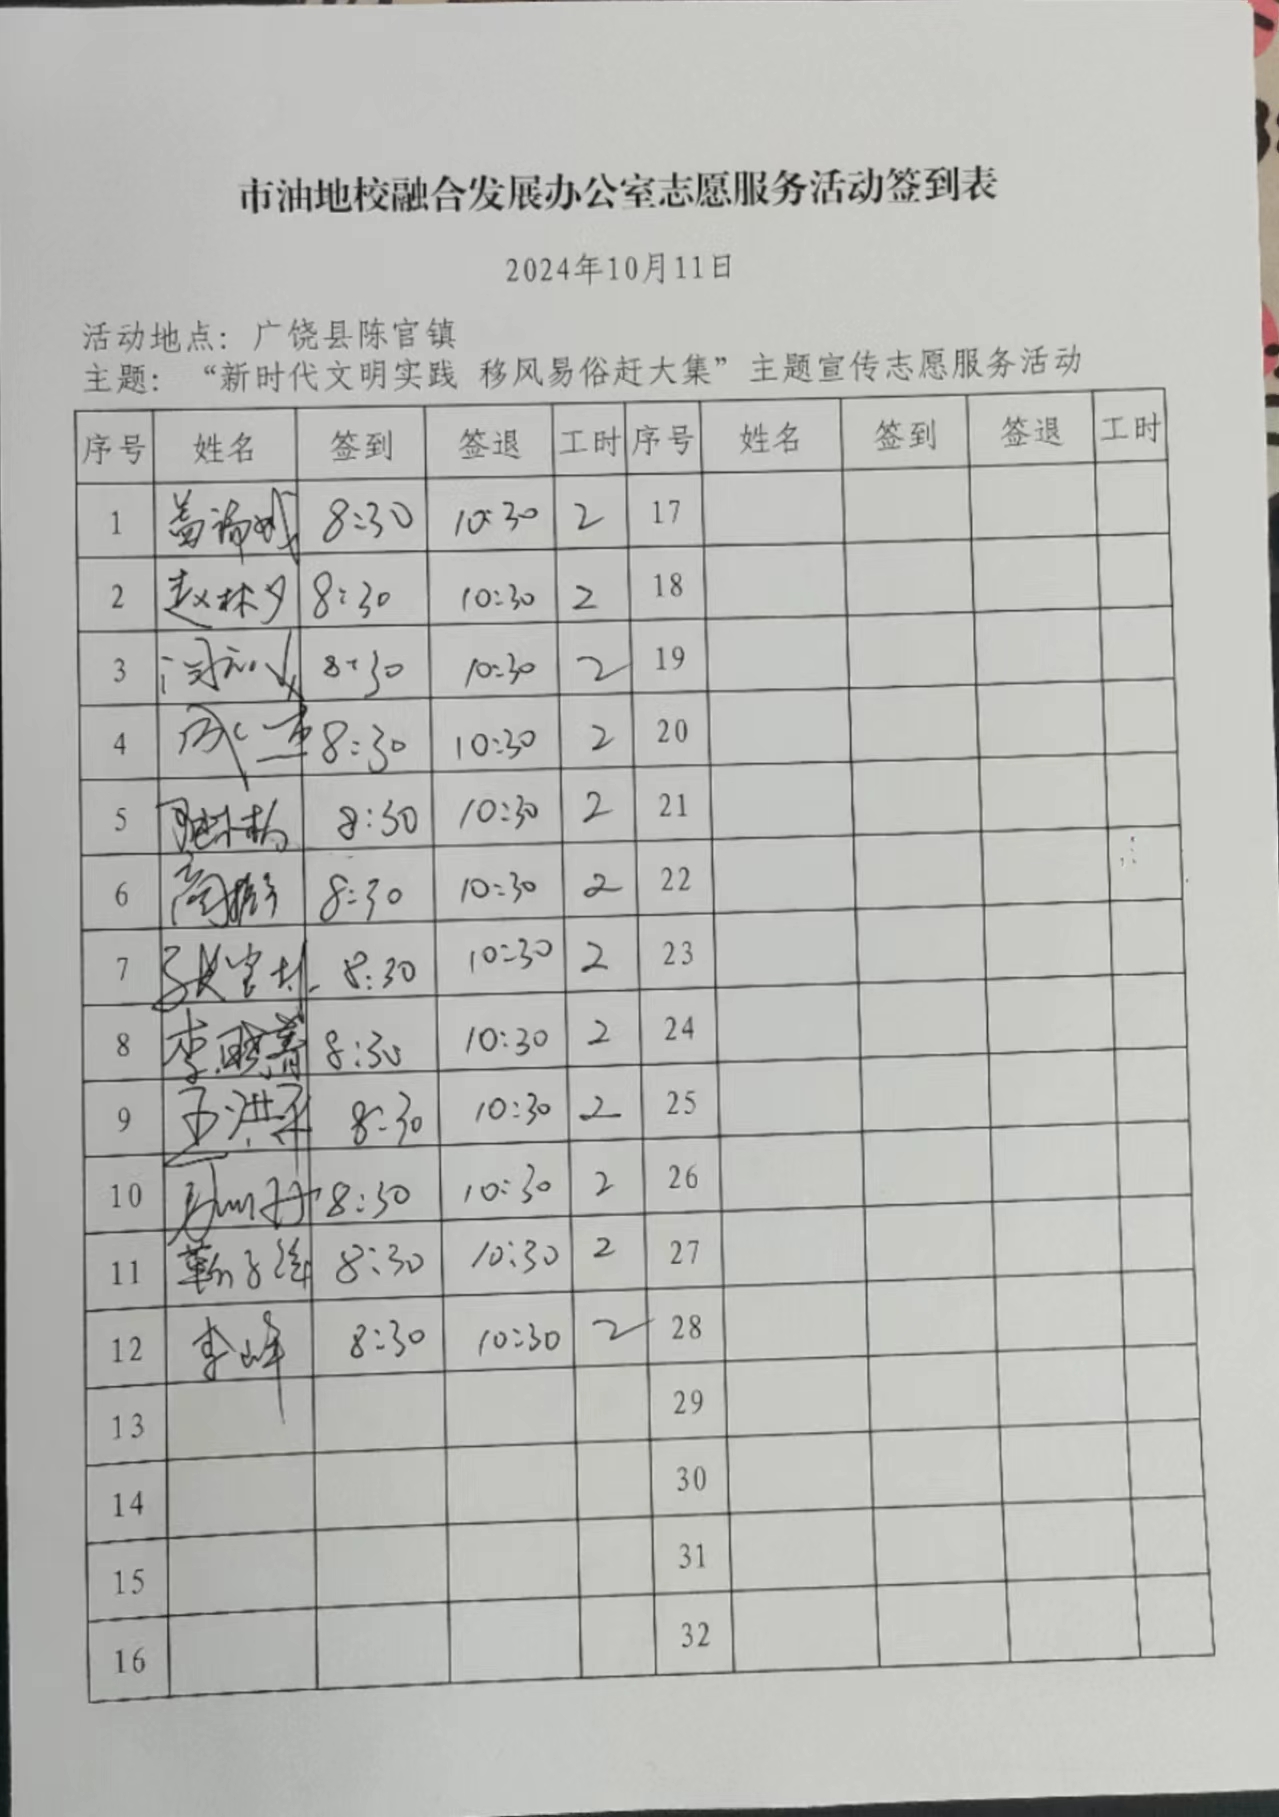 市油地校融合发展办公室志愿服务活动签到表
2024年10月11日
活动地点：广饶县陈官镇
主题：“新时代文明实践 移风易俗赶大集”主题宣传志愿服务活动
序号 姓名 签到 签退 工时 序号 姓名 签到 签退 工时
1 8:30 10:30 2 17
2 赵林夕 8:30 10:30 2 18
3 8:30 10:30 2 19
4 8:30 10:30 2 20
5 8:30 10:30 2 21
6 8:30 10:30 2 22
7 8:30 10:30 2 23
8 李晓菁 8:30 10:30 2 24
9 8:30 10:30 2 25
10 8:30 10:30 2 26
11 8:30 10:30 2 27
12 李峰 8:30 10:30 2 28
13 29
14 30
15 31
16 32